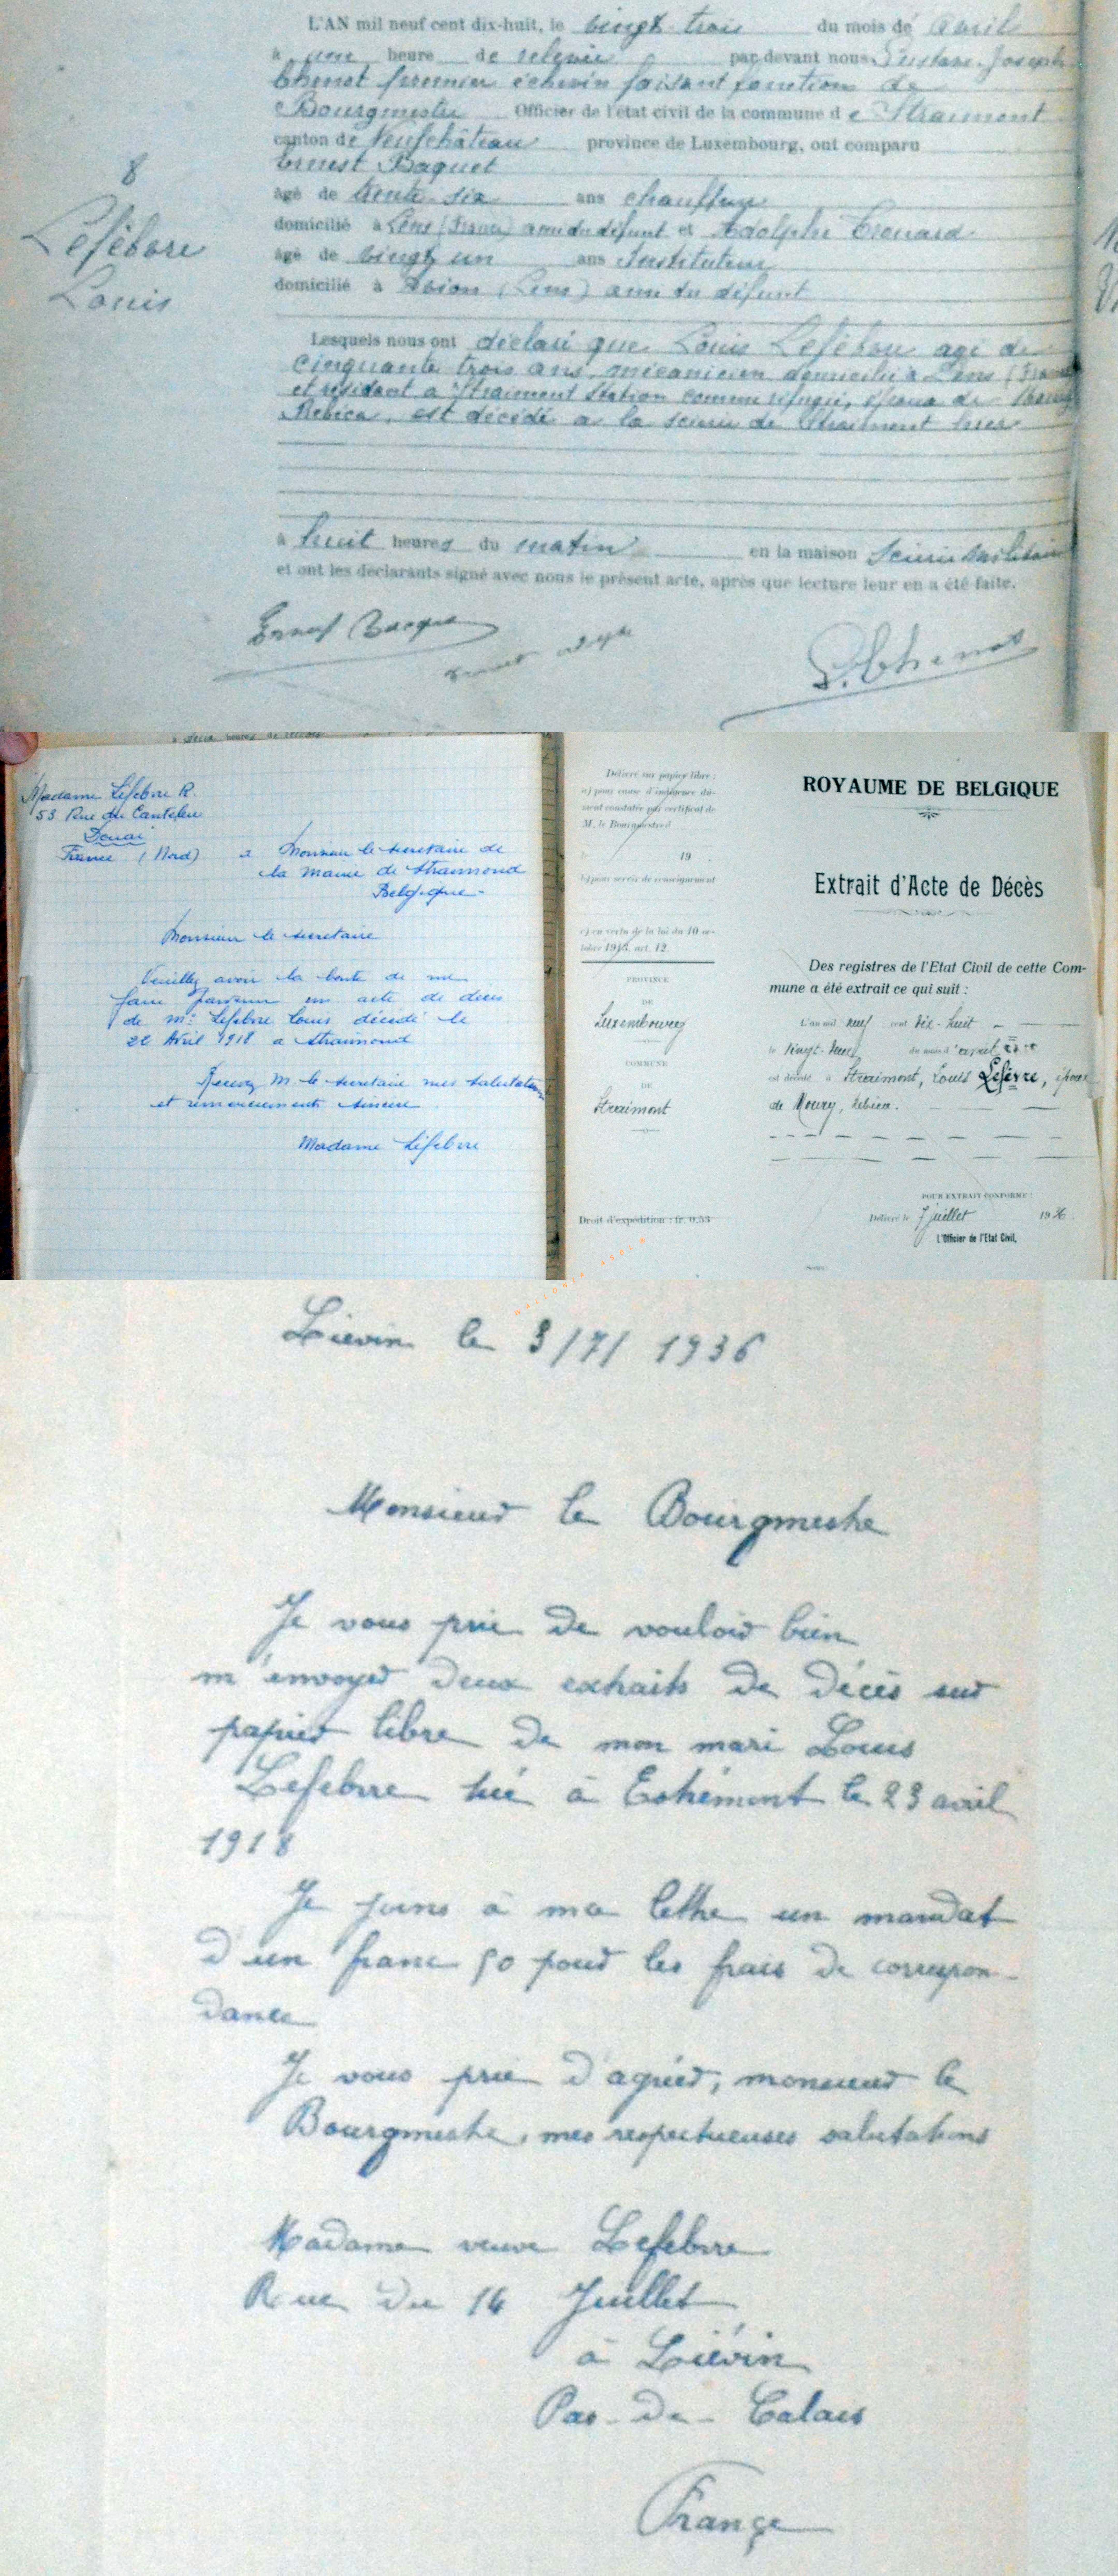 L'AN mil neuf cent dix-huit, le vingt trois du mois de Avril
à une heure de relevée par devant nous Gustave Joseph
Chenot premier échevin faisant fonction de
Bourgmestre Officier de l'état civil de la commune d e Straimont
canton de Neufchâteau province de Luxembourg, ont comparu
Ernest Baquet
âgé de trente six ans chauffeur
domicilié à Lens (France) ami du défunt et Adolphe
âgé de vingt un ans Instituteur
domicilié à (Lens) ami du défunt
8
Lefébvre
Louis
Lesquels nous ont déclaré que Louis Lefébvre agé de
cinquante trois ans, mécanicien domicilié à Lens
et résidant à Straimont Station comme réfugié, époux de
Rebéca, est décédé à la scierie de Straimont hier
à huit heures du matin en la maison Scierie militaire
et ont les déclarants signé avec nous le présent acte, après que lecture leur en a été faite.
Ernest Bacque
G. Chenot
Madame Lefebvre R.
53 Rue du Canteleu
Douai
France (Nord) à Monsieur le secretaire de
la mairie de Straimond
Belgique -
Monsieur le secretaire
Veuillez avoir la bonté de me
faire parvenir un acte de deces
de Mr Lefebvre Louis décédé le
22 Avril 1918 a Straimond
Recevez M. le secretaire mes salutations
et remerciements sincere
Madame Lefebvre
Délivré sur papier libre :
a) pour cause d'indigence dû-
ment constatée par certificat de
M. le Bourgmestre d
le 19
b) pour servir de renseignement
c) en vertu de la loi du 10 oc-
tobre 1913, art. 12.
PROVINCE
DE
Luxembourg
COMMUNE
DE
Straimont
Droit d'expédition : fr. 0.55
ROYAUME DE BELGIQUE
Extrait d'Acte de Décès
Des registres de l'Etat Civil de cette Com-
mune a été extrait ce qui suit :
L'an mil neuf cent dix-huit
le du mois d'
est décédé à Straimont, Louis Lefèvre, époux
de Moury, Rebéca.
POUR EXTRAIT CONFORME :
Délivré le 7 juillet 1936.
L'Officier de l'Etat Civil,
WALLONIE
Liévin le 3/7/1936
Monsieur le Bourgmestre
Je vous prie de vouloir bien
m'envoyer deux extraits de décès sur
papier libre de mon mari Louis
Lefebvre tué à Estrémont le 23 avril
1918
Je joins à ma lettre un mandat
d'un franc 50 pour les frais de correspon-
dance
Je vous prie d'agréer, monsieur le
Bourgmestre, mes respectueuses salutations
Madame veuve Lefebvre
Rue du 14 Juillet
à Liévin
Pas-de-Calais
France